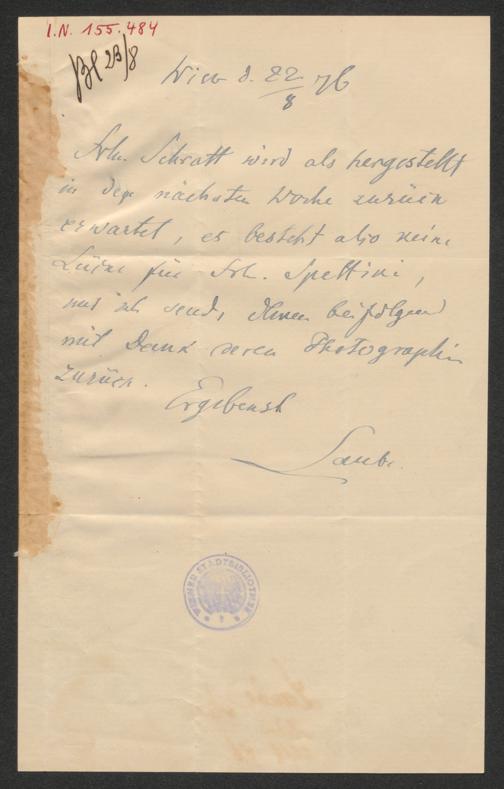 I.N. 155.484
23/8
Wien d. 22/8 76
Frln. Schratt wird als hergestellt
in der nächsten Woche zurück
erwartet, es besteht also keine
Lücke für Frln. Spettini,
und ich sende Ihnen beifolgend
mit Dank deren Photographin
zurück.
Ergebenst
Laube.
WIENER STADTBIBLIOTHEK